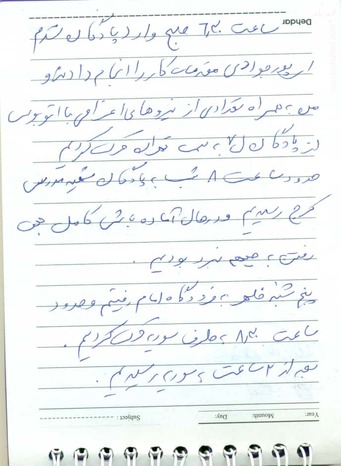 Dehdar
ساعت ۶/۳۰ صبح وارد پادگان شدم
مقدمات کار را انجام داد و
من به همراه تعدادی از نیروهای اعزامی با اتوبوس
از پادگان به سمت تهران حرکت کردیم
حدود ساعت ۸ شب به پادگان شهید مدرس
کرج رسیدیم و در حال آماده باش کامل جهت
رفتن به جبهه نبرد بودیم.
پنج شنبه ظهر به فرودگاه امام رفتیم و حدود
ساعت ۸/۳۰ به طرف سوریه حرکت کردیم.
بعد از ۲ ساعت به سوریه رسیدیم.
Subject: Day: Mounth: Year: